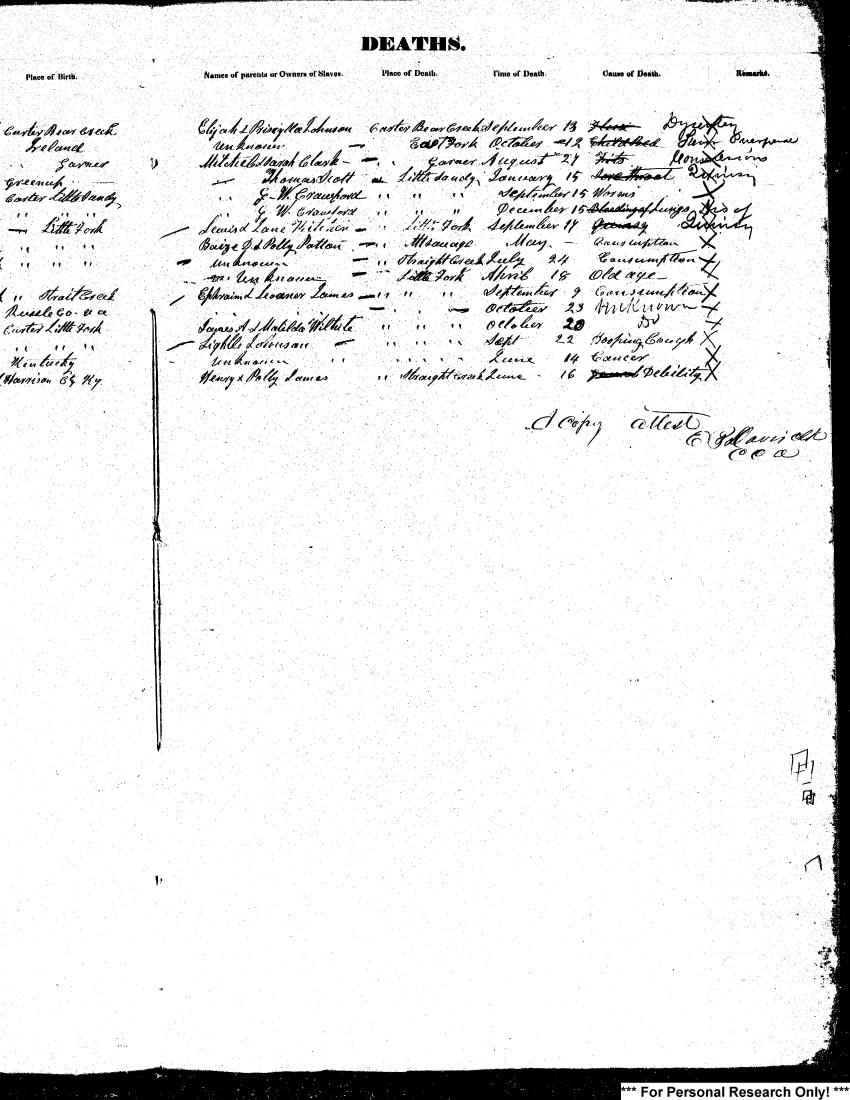 DEATHS.
Place of Birth. Names of parents or Owners of Slaves. Place of Death. Time of Death. Cause of Death. Remarks.
Carter Bear Creek Elijah & Johnson Carter Bear Creek September 13 Flux Dysentery
Ireland Unknown — East Fork October 12 Childbed Puerperal
" Garner Mitchel & Sarah Clark — " Garner August 27 Fits Convulsions
Greenup — Thomas Scott Little Sandy January 15 Sore throat Quinsy
Carter Little Sandy " G. W. Crawford " " " September 15 Worms
" " " " G. W. Crawford " " " December 15 Bleeding of Lungs
— Little Fork Lewis & Jane — " Little Fork September 14 Quinsy Quinsy
" " " & Polly Patton — " May — Consumption
" " " Unknown — " Straight Creek July 24 Consumption
Unknown — Little Fork April 18 Old age —
" Strait Creek Ephraim & James — " " " September 9 Consumption
Russle Co. Va " " — October 23 Unknown
Carter Little Fork James A & Matilda " " " October 20 Do
" " " — Johnson — " " " Sept 22 Hooping Cough
Kentucky Unknown " " June 14 Cancer
Harrison Ky Henry & Polly James " Straight Creek June 16 Debility
A Copy attest
C C C
*** For Personal Research Only! ***